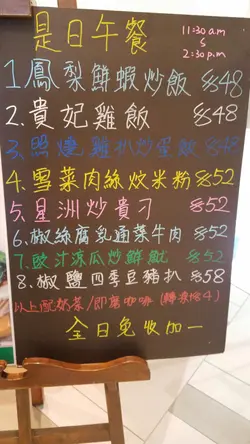 是日午餐
11:30 a.m
S
2:30 p.m
1.鳳梨鮮蝦炒飯 $48
2.貴妃雞飯 $48
3.照燒雞扒炒蛋飯 $48
4.雪菜肉絲炆米粉 $52
5.星洲炒貴刁 $52
6.椒絲腐乳通菜牛肉 $52
7.豉汁涼瓜炒鮮魷 $52
8.椒鹽四季豆豬扒 $58
以上配奶茶/即磨咖啡 (轉凍加4)
全日免收加一